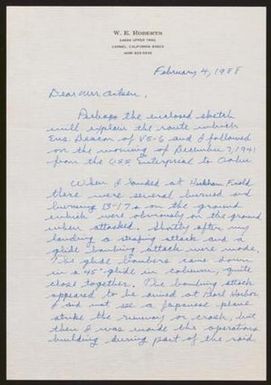 W. E. ROBERTS
CARMEL, CALIFORNIA 93923
February 4, 1988
Dear Mr
Perhaps the enclosed sketch
will explain the route which
Ens. Deacon of VS-6 and I followed
on the morning of December 7, 1941
from the USS Enterprise to Oahu
When I landed at Hickam Field
there were several burned and
burning B-17's on the ground
which were obviously on the ground
when attacked. Shortly after my
landing a strafing attack and a
glide bombing attack were made.
The glide bombers came down
in a 45° glide in column, quite
close together. The bombing attack
appeared to be aimed at Pearl Harbor
I did not see a Japanese plane
strike the runway or crash, but
then I was inside the operations
building during part of the raid